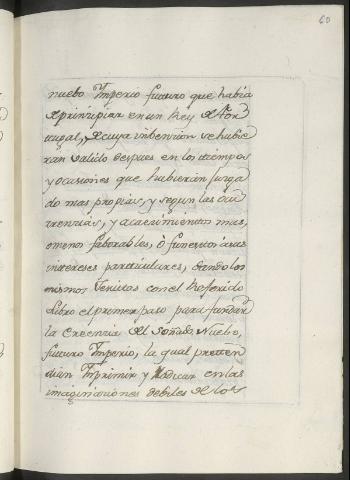 60
nuebo Imperio futuro que habia
de prinzipiar en un Rey de Por
tugal, de cuya inbencion se hubie
ran valido despues en los tiempos
y ocasiones que hubieran juzga
do mas propias, y segun las ocu
rrencias, y acaecimientos mas,
ò menos faborables, ò funestos à sus
intereses particulares, dando los
mismos Jesuitas con el Referido
Libro el primer paso para fundar
la Creencia del soñado Nuebo,
futuro Imperio, la qual preten
dian Imprimir y Radicar en las
imaginaciones debiles de los